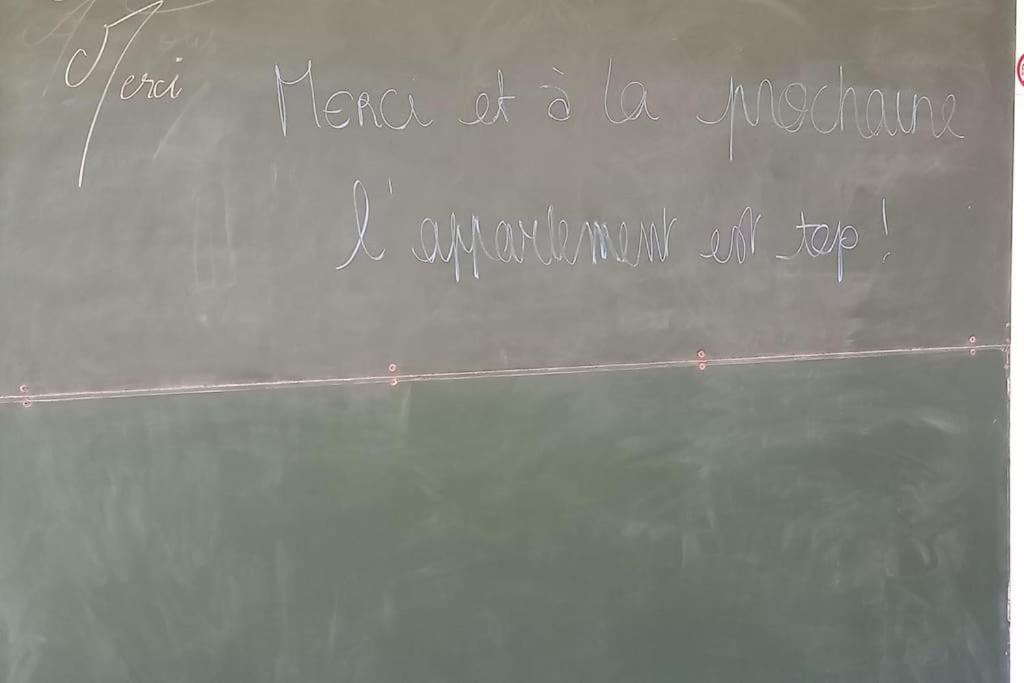 Merci
Merci et à la prochaine
l'appartement est top !